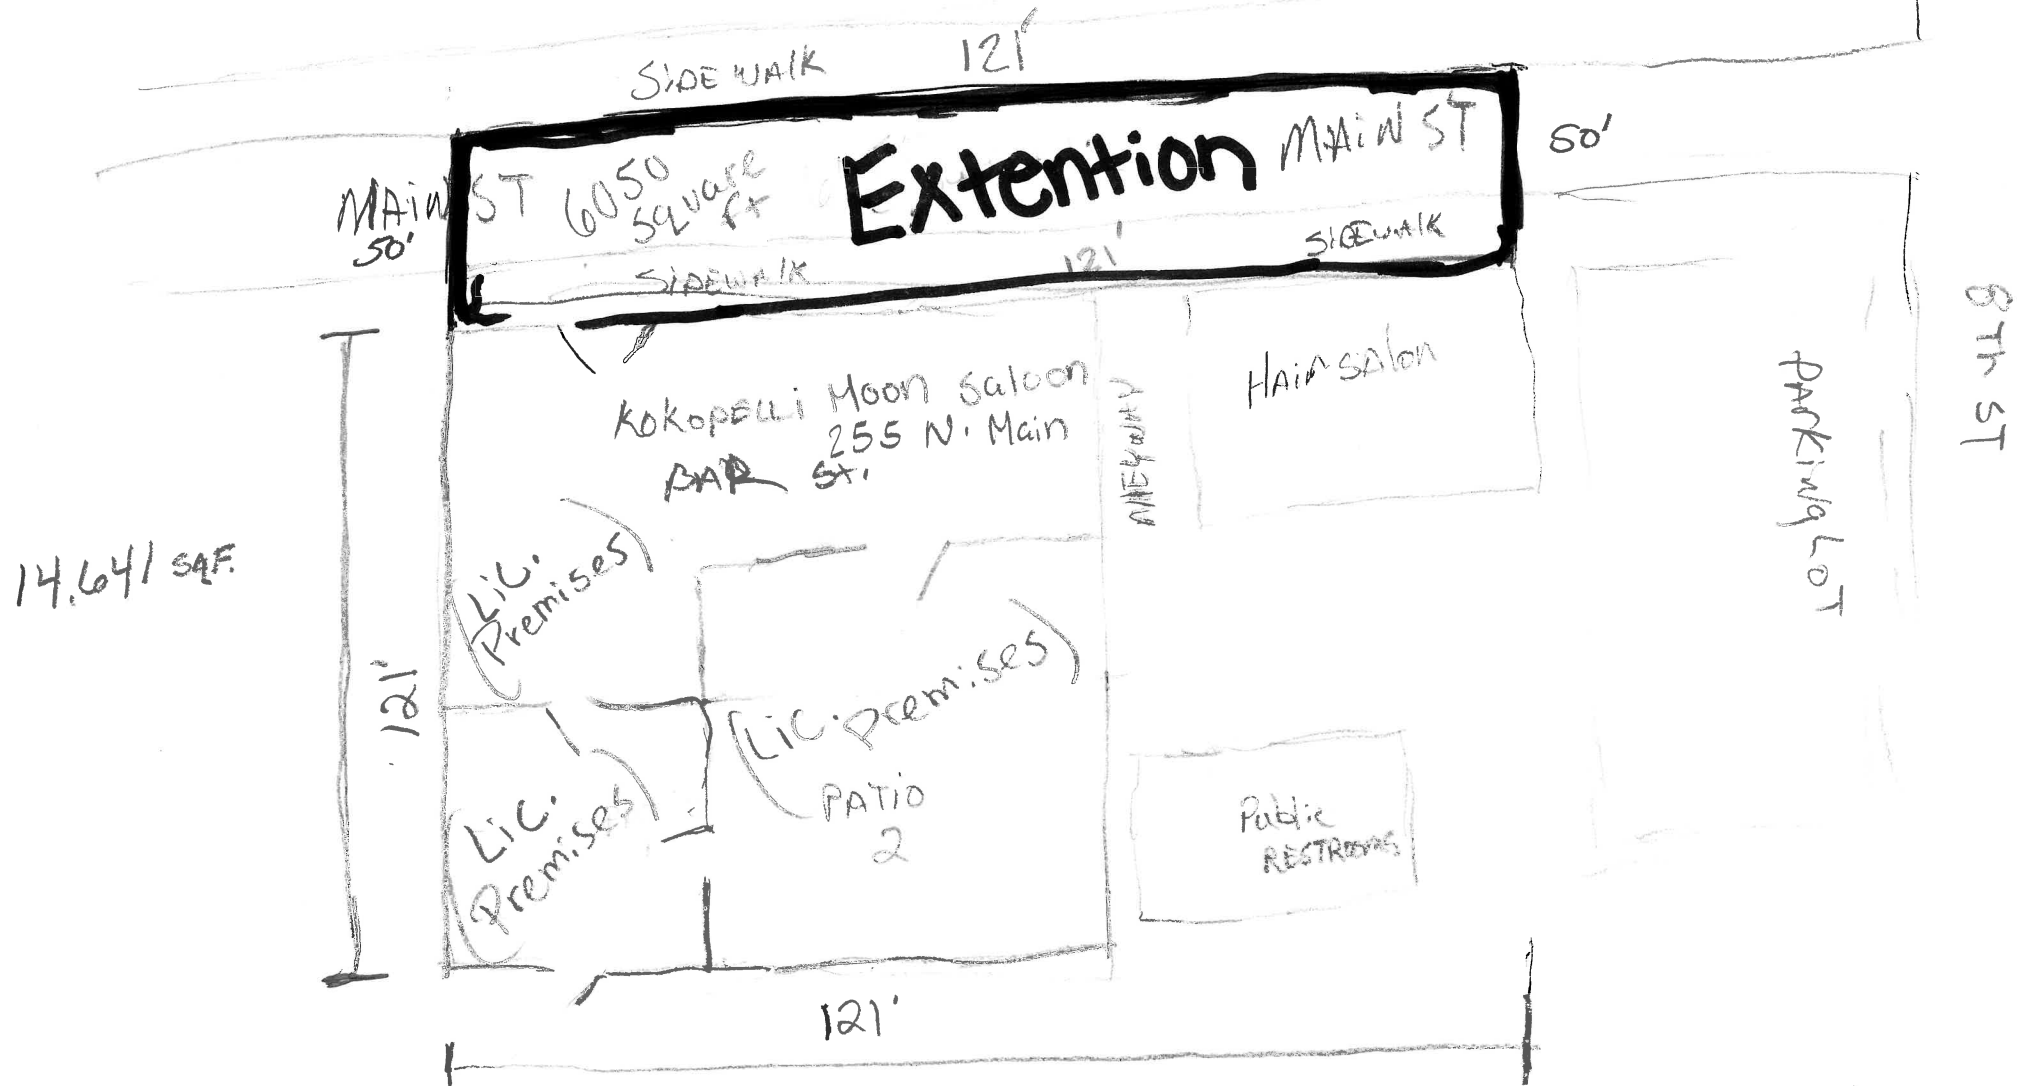 SIDEWALK
121'
MAIN ST
6050
square
ft
Extention
MAIN ST
50'
50'
SIDEWALK
121'
SIDEWALK
KOKOPELLI Moon Saloon
255 N. Main
BAR St.
AllEYWAY
HAIR SAlon
PARKING LOT
8Th ST
14.641 SQF.
121'
Lic.
Premises
(Lic. premises)
PATIO
2
Lic.
Premises
Public
RESTROOMS
121'